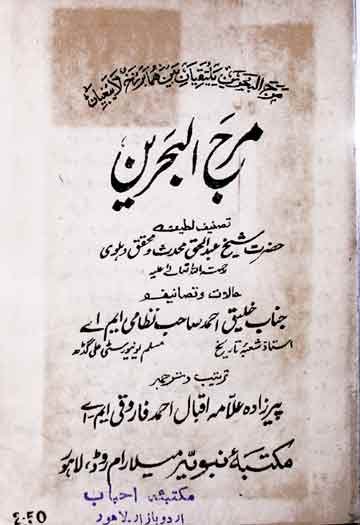 مرج البحرین یلتقیان بینھما برزخ لا یبغیان
مرج البحرین
تصنیف لطیف
حضرت شیخ عبدالحق محدث و محقق دہلوی
رحمۃ اللہ تعالےٰ علیہ
حالات و تصانیف
جناب خلیق احمد صاحب نظامی ایم اے
استاذ شعبۂ تاریخ مسلم یونیورسٹی علی گڑھ
ترتیب و ترجمہ
پیرزادہ علامہ اقبال احمد فاروقی ایم۔اے
مکتبۂ نبویہ میلارام روڈ، لاہور
مکتبۂ احباب
اردو بازار۔ لاہور